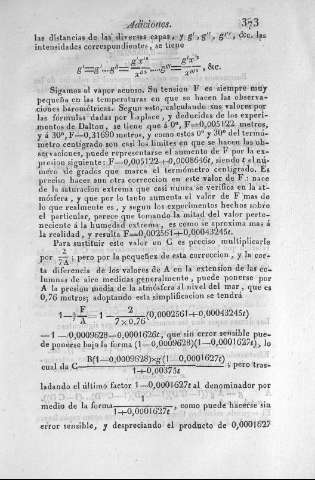 Adiciones. 373
las distancias de las diversas capas, y g', g'', g''', &c. las
intensidades correspondientes, se tiene
g'=g'...g''= g'x'²/x''² ,...g'''= g'x'²/x'''² , &c.
Sigamos al vapor acuoso. Su tension F es siempre muy
pequeña en las temperaturas en que se hacen las observa-
ciones barométricas. Segun esto, calculando sus valores por
las fórmulas dadas por Laplace, y deducidas de los experi-
mentos de Dalton, se tiene que á 0°, F=0,005122 metros,
y á 30°, F=0,31690 metros, y como estos 0° y 30° del termó-
metro centígrado son casi los límites en que se hacen las ob-
servaciones, puede representarse el aumento de F por la ex-
presion siguiente: F=0,005122+0,0008646t, siendo t el nú-
mero de grados que marca el termómetro centígrado. Es
preciso hacer aun otra correccion en este valor de F: nace
de la saturacion extrema que casi nunca se verifica en la at-
mósfera, y que por lo tanto aumenta el valor de F mas de
lo que realmente es, y segun los experimentos hechos sobre
el particular, parece que tomando la mitad del valor perte-
neciente á la humedad extrema, es como se aproxima mas á
la realidad, y resulta F=0,002561+0,0004323t.
Para sustituir este valor en G es preciso multiplicarle
por 2/7A ; pero por la pequeñez de esta correccion, y la cor-
ta diferencia de los valores de A en la extension de las co-
lumnas de aire medidas generalmente, puede ponerse por
A la presion media de la atmósfera al nivel del mar, que es
0,76 metros; adoptando esta simplificacion se tendrá
1—²⁄₇ F/A = 1 — 2/7×0,76 (0,0002561+0,00043245t)
=1—0,0009628—0,0001626t, que sin error sensible pue-
de ponerse bajo la forma (1—0,0009628)(1—0,0001627t), lo
cual da C= B(1—0,0009628)×g(1—0,0001627t)/1+0,00375t ; pero tras-
ladando el último factor 1—0,0001627t al denominador por
medio de la forma 1/1+0,0001627t , como puede hacerse sin
error sensible, y despreciando el producto de 0,0001627